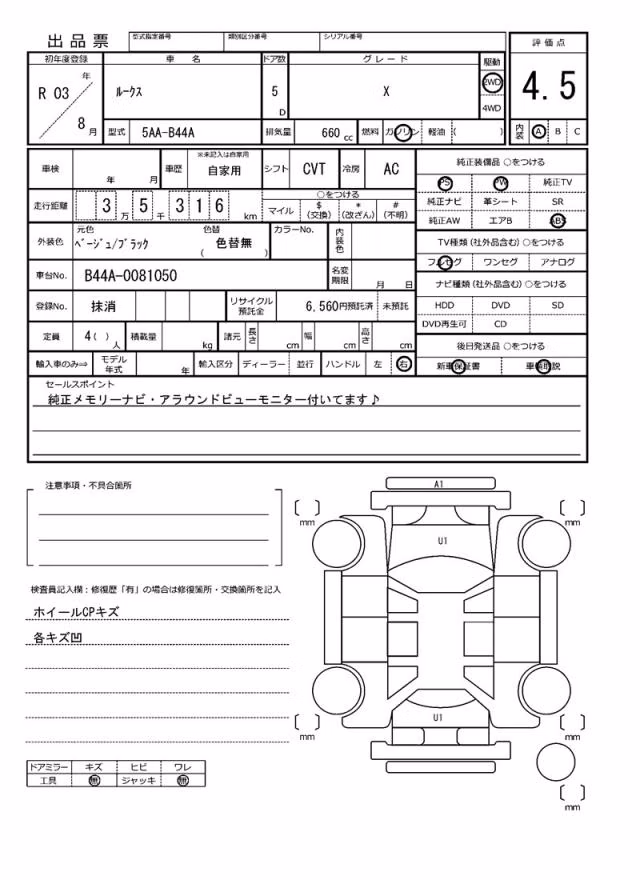 出品票 型式指定番号 類別区分番号 シリアル番号
評価点
初年度登録 車名 ドア数 グレード 駆動
R 03 年 8 月 ﾙｰｸｽ 5 D X 2WD 4WD
4.5
型式 5AA-B44A 排気量 660 cc 燃料 ガソリン 軽油 ( )
内装 A B C
車検 年 月 車歴 ※未記入は自家用 自家用 シフト CVT 冷房 AC
純正装備品 ○をつける
PS PW 純正TV
走行距離 3 万 5 千 3 1 6 km
○をつける
マイル $(交換) *(改ざん) #(不明)
純正ナビ 革シート SR
純正AW エアB ABS
外装色 元色 ﾍﾞｰｼﾞｭ/ﾌﾞﾗｯｸ 色替 色替無 ( ) カラーNo. 内装色
TV種類 (社外品含む) ○をつける
フルセグ ワンセグ アナログ
車台No. B44A-0081050 名変期限 月 日
ナビ種類 (社外品含む) ○をつける
HDD DVD SD
DVD再生可 CD
登録No. 抹消 リサイクル預託金 6,560円預託済 未預託
定員 4( ) 人 積載量 kg 諸元 長さ cm 幅 cm 高さ cm
後日発送品 ○をつける
新車保証書 車輌取説
輸入車のみ⇒ モデル年式 年 輸入区分 ディーラー 並行 ハンドル 左 右
セールスポイント
純正メモリーナビ・アラウンドビューモニター付いてます♪
注意事項・不具合箇所
検査員記入欄：修復歴「有」の場合は修復箇所・交換箇所を記入
ホイールCPキズ
各キズ凹
ドアミラー キズ ヒビ ワレ
工具 無 ジャッキ 無
A1
U1
U1
mm
mm
mm
mm
mm